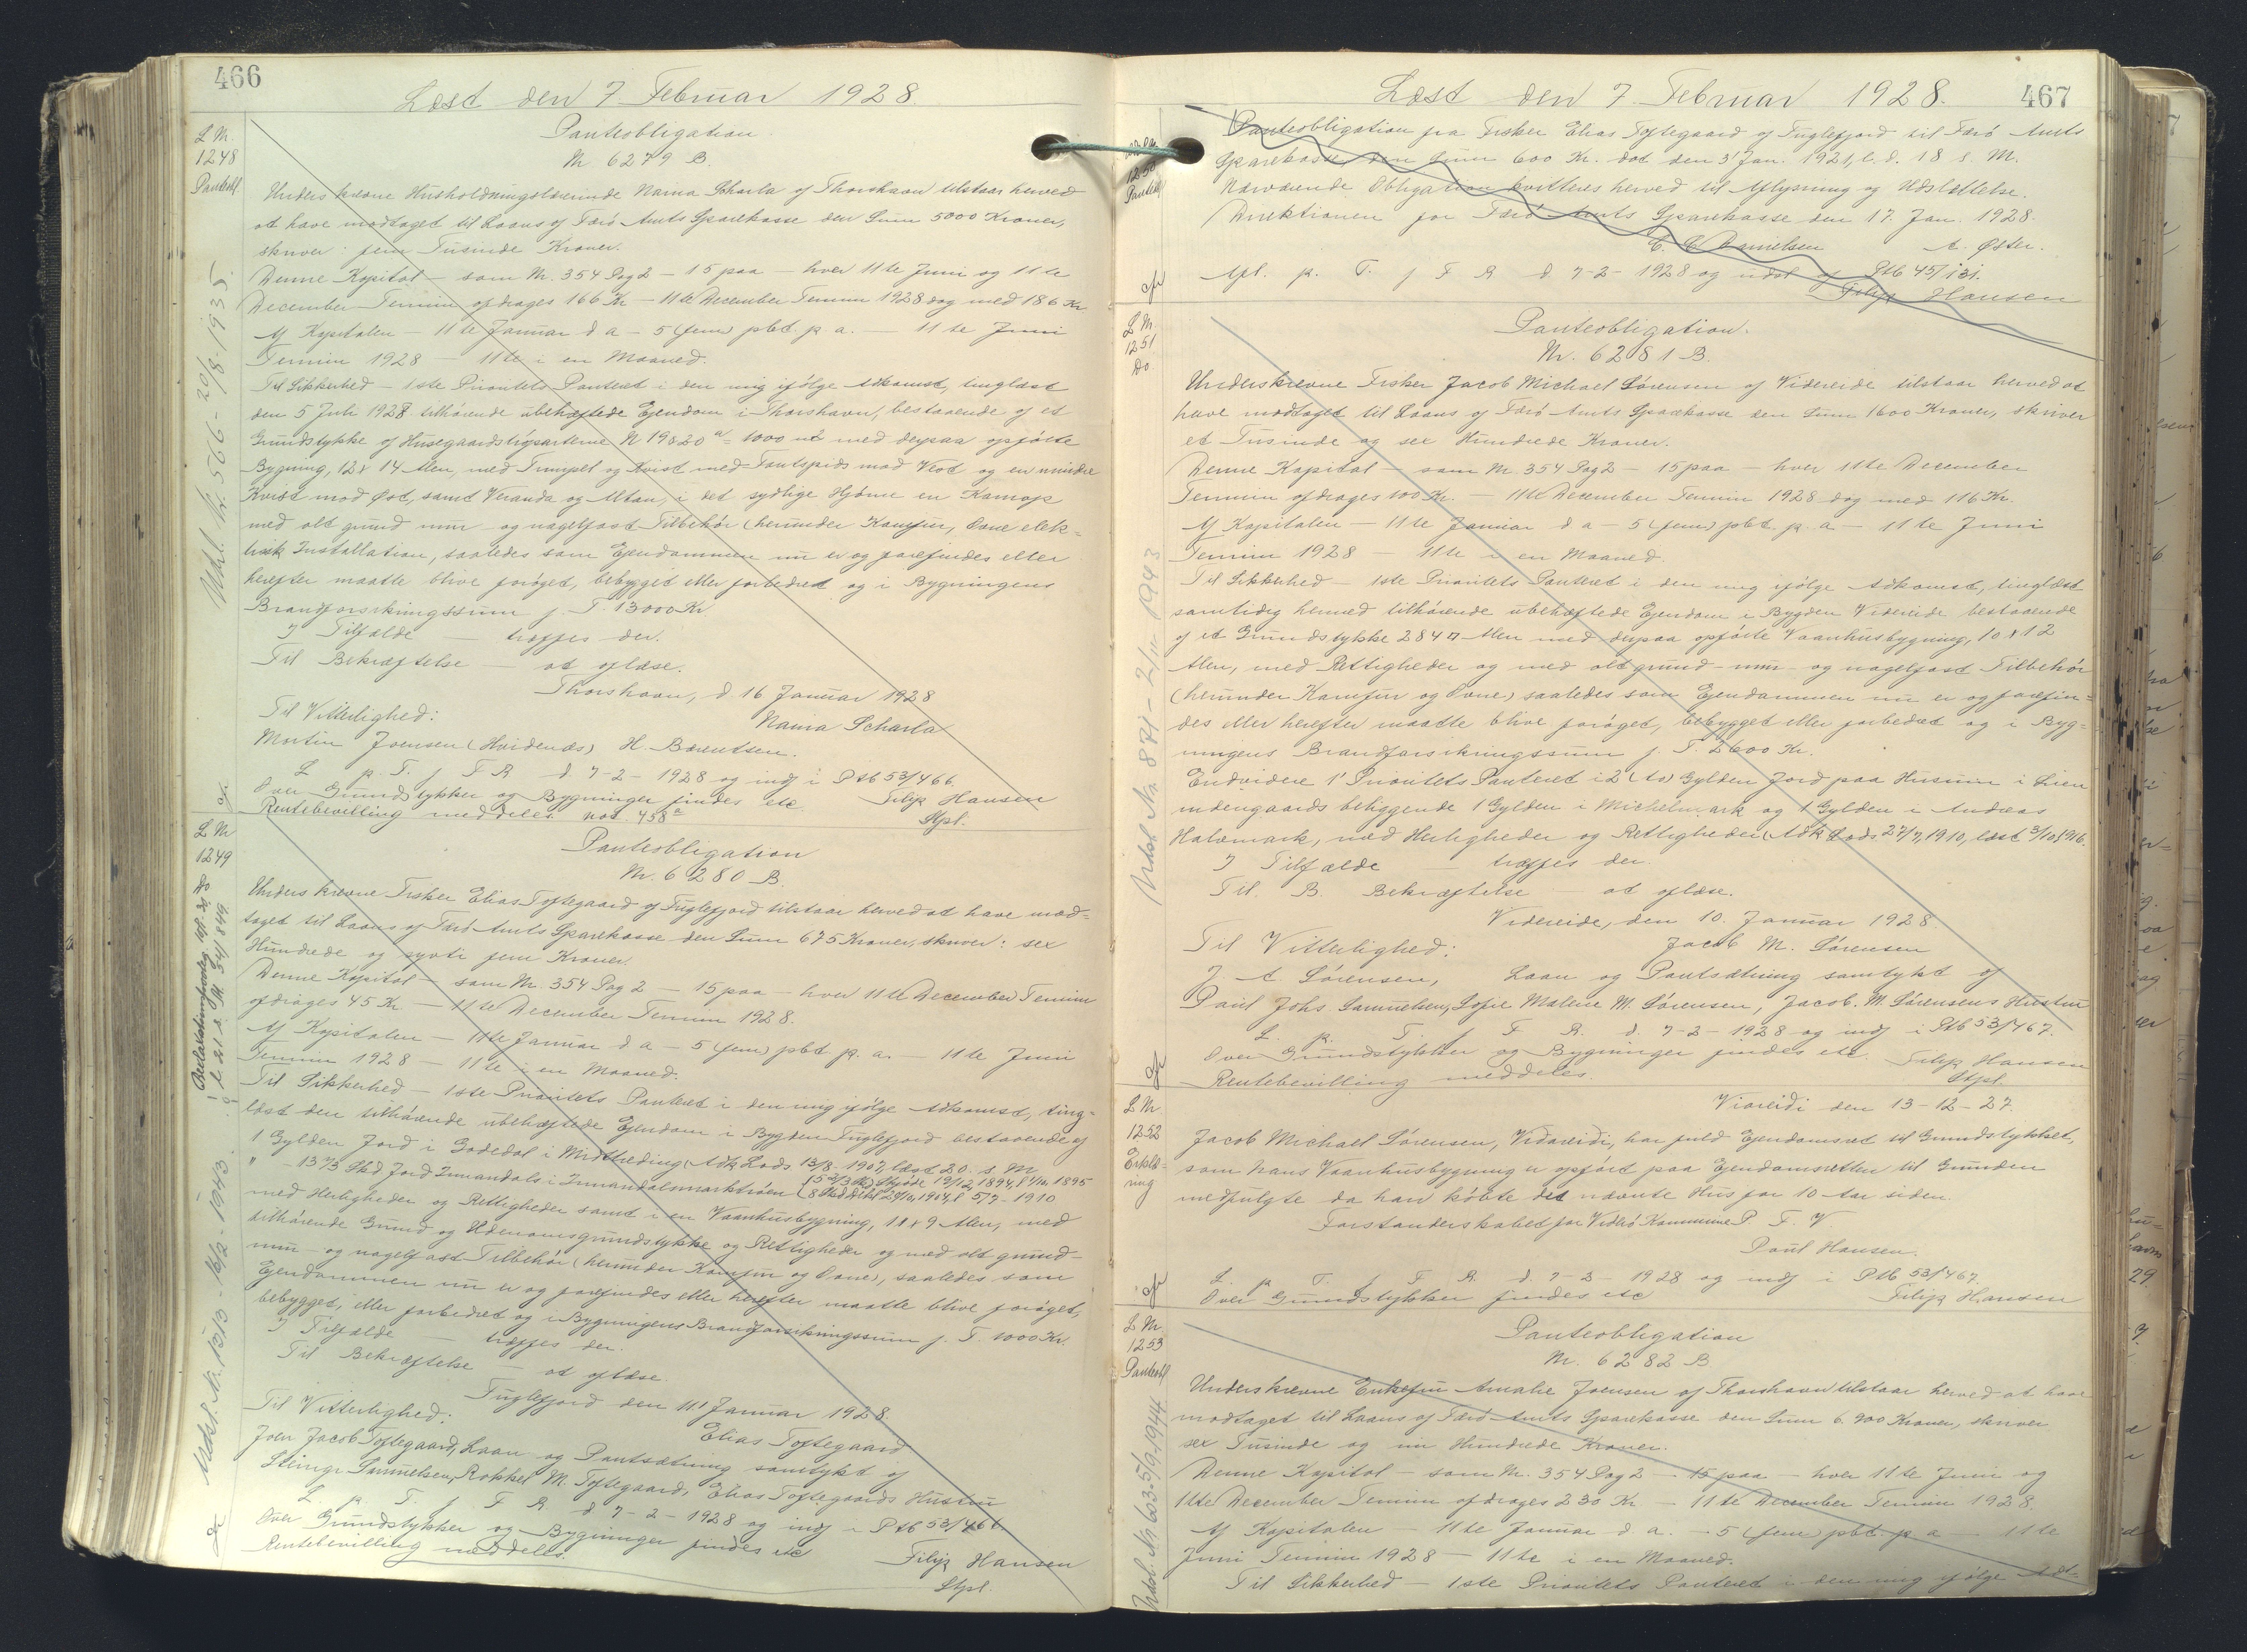 466
Læst den 7 Februar 1928.
L Nr.
1248
Panteobl.
Udsl. Nr. 566 - 20/8-1935.
Panteobligation.
Nr 6279 B.
Underskrevne Husholdningslærerinde Nama Scharla af Thorshavn tilstaar herved
at have modtaget til Laans af Færö Amts Sparekasse den Sum 5000 Kroner,
skriver fem Tusinde Kroner.
Denne Kapital - som Nr. 354 Pag 2 - 15 paa - hver 11te Juni og 11te
December Termin afdrages 166 Kr - 11te December Termin 1928 dog med 186 Kr
Af Kapitalen - 11te Januar d a - 5 (fem) pCt. p. a. - 11te Juni
Termin 1928 - 11te i en Maaned.
Til Sikkerhed - 1ste Prioritets Panteret i den mig ifölge Adkomst, tinglæst
den 5 Juli 1928 tilhörende ubehæftede Ejendom i Thorshavn, bestaaende af et
Grundstykke af Husegaardstrópartene N 19 & 20 a = 1000 m2 med derpaa opförte
Bygning, 12 x 14 Alen, med Trempel og Kvist med Tantspids mod Vest og en mindre
Kvist mod Øst, samt Veranda og Altan, i det sydlige Hjörne en Karnap
med alt grund mur- og nagelfast Tilbehör (herunder Komfur, Ovne elek=
trisk Installation, saaledes som Ejendommen nu er og forefindes eller
herefter maatte blive foröget, bebygget eller forbedret og i Bygningens
Brandforsikringssum f. T. 13000 Kr
I Tilfælde - træffes der.
Til Bekræftelse - at aflæse.
Thorshavn, d. 16 Januar 1928
Til Vitterlighed: Nama Scharla
Mortin Joensen (Hvidenæs) H. Bærentsen.
L p. T. f F R d. 7-2-1928 og indf i Ptb 53/466.
Over Grundstykker og Bygninger findes etc Filip Hansen
Rentebevilling meddeles not. 458 a Stpl.
L Nr
1249
Do
Udsl. Nr. 1313 - 16/2-1943.
Panteobligation
Nr. 6280 B.
Underskrevne Fisker Elias Toftegaard af Fuglefjord tilstaar herved at have mod=
taget til Laans af Færö Amts Sparekasse den Sum 675 Kroner, skriver: sex
Hundrede og syvti fem Kroner.
Denne Kapital - som Nr. 354 Pag 2 - 15 paa - hver 11te December Termin
afdrages 45 Kr - 11te December Termin 1928.
Af Kapitalen - 11te Januar d a - 5 (fem) pCt p. a. - 11te Juni
Termin 1928 - 11te i en Maaned.
Til Sikkerhed - 1ste Prioritets Panteret i den mig ifölge Adkomst, ting=
læst den tilhörende ubehæftede Ejendom i Bygden Fuglefjord bestaaende af
1 Gylden Jord i Godedal i Midttreding (Adk Lods 13/8-1907, læst 20. s. M
" - 13 2/3 Skd Jord Innandals i Innandalsmarktróen (5 2/3 Skd Skjöde 19/12 1894, l 1895
8 Skd Adk 1914, l 5/7-1910
med Herligheder og Rettigheder samt i en Vaanhusbygning, 11 x 9 Alen, med
tilhörende Grund og Udenomsgrundstykke og Rettigheder og med alt grund-
mur- og nagelfast Tilbehör (herunder Komfur og Ovne), saaledes som
Ejendommen nu er og forefindes eller herefter maatte blive foröget,
bebygget, eller forbedret og i Bygningens Brandforsikringssum f. T. 1000 Kr.
I Tilfælde træffes der.
Til Bekræftelse - at aflæse
Fuglefjord den 11' Januar 1928.
Til Vitterlighed: Elias Toftegaard
Joen Jacob Toftegaard, Laan og Pantsætning samtykt af
Samuelsen, Rakkel M. Toftegaard, Elias Toftegaards Hustru
L p. T. f F R. d 7-2-1928 og indf i Ptb 53/466
Over Grundstykker og Bygninger findes etc Filip Hansen
Rentebevilling meddeles. Stpl.
467
Læst den 7. Februar 1928.
1250
Panteobl
Panteobligation fra Fisker Elias Toftegaard af Fuglefjord til Færö Amts
Sparekasse den Sum 600 Kr. dat den 3' Jan. 1921, l. d. 18 s. M.
Nærværende Obligation kvitteres herved til Aflysning og Udslettelse.
Direktionen for Færö Amts Sparekasse den 17. Jan. 1928.
C. C Danielsen A. Øster.
Afl. p. T. f F R d 7-2-1928 og udsl af Ptb 45/131.
Filip Hansen
L Nr.
1251
Do
Udsl. Nr. 871 - 2/11 1943
Panteobligation.
Nr. 6281 B.
Underskrevne Fisker Jacob Michael Sörensen af Videreide tilstaar herved at
have modtaget til Laans af Færö Amts Sparekasse den Sum 1600 Kroner, skriver
et Tusinde og sex Hundrede Kroner.
Denne Kapital - som Nr 354 Pag 2 - 15 paa - hver 11te December
Termin afdrages 100 Kr. - 11te December Termin 1928 dog med 116 Kr.
Af Kapitalen - 11te Januar d a - 5 (fem) pCt. p. a - 11te Juni
Termin 1928 - 11te i en Maaned.
Til Sikkerhed - 1ste Prioritets Panteret i den mig ifölge Adkomst, tinglæst
samtidig hermed tilhörende ubehæftede Ejendom i Bygden Videreide bestaaende
af et Grundstykke 284 □ Alen med derpaa opförte Vaanhusbygning, 10 x 12
Alen, med Rettigheder og med alt grund- mur- og nagelfast Tilbehör
(herunder Komfur og Ovne) saaledes som Ejendommen nu er og forefin=
des eller herefter maatte blive foröget, bebygget eller forbedret og i Byg=
ningens Brandforsikringssum f. T. 2600 Kr.
Endvidere 1' Prioritets Panteret i 2 (to) Gylden Jord paa Husum i
indengaards beliggende 1 Gylden i Michelmark og 1 Gylden i Andreas
Halvmark, med Herligheder og Rettigheder (Adk Lods 27/7, 1910, læst 3/10 1916.
I Tilfælde - træffes der.
Til B Bekræftelse - at aflæse.
Videreide, den 10. Januar 1928.
Til Vitterlighed: Jacob M. Sörensen
J. A Sörensen, Laan og Pantsætning samtykt af
Paul Johs Samuelsen, Sofie Malene M. Sörensen, Jacob. M. Sörensens Hustru
L. p. T f F R. d. 7-2-1928 og indf i Ptb 53/467.
Over Grundstykker og Bygninger findes etc. Filip Hansen
Rentebevilling meddeles. Stpl.
L Nr
1252
Erklæ=
ring
Viareidi den 13-12-27.
Jacob Michael Sörensen, Vidareidi, har fuld Ejendomsret til Grundstykket,
som hans Vaanhusbygning er opfört paa Ejendomsretten til Grunden
medfulgte da han köbte det nævnte Hus for 10 Aar siden.
Forstanderskabet for Viderö Kommune P. F. V.
Poul Hansen.
L. p T. f F R. d. 7-2-1928 og indf i Ptb 53/467.
Over Grundstykker findes etc Filip Hansen
L Nr.
1253
Panteobl
Udsl. Nr. 635 - 5/9 1944
Panteobligation
Nr. 6282 B.
Underskrevne Enkefru Amalie Joensen af Thorshavn tilstaar herved at have
modtaget til Laans af Færö Amts Sparekasse den Sum 6.900 Kroner, skriver
sex Tusinde og ni Hundrede Kroner.
Denne Kapital - som Nr. 354 Pag 2 - 15 paa - hver 11te Juni og
11te December Termin afdrages 230 Kr - 11te December Termin 1928.
Af Kapitalen - 11te Januar d. a. - 5 (fem) pCt. p a - 11te
Juni Termin 1928 - 11te i en Maaned.
Til Sikkerhed - 1ste Prioritets Panteret i den mig ifölge Ad-